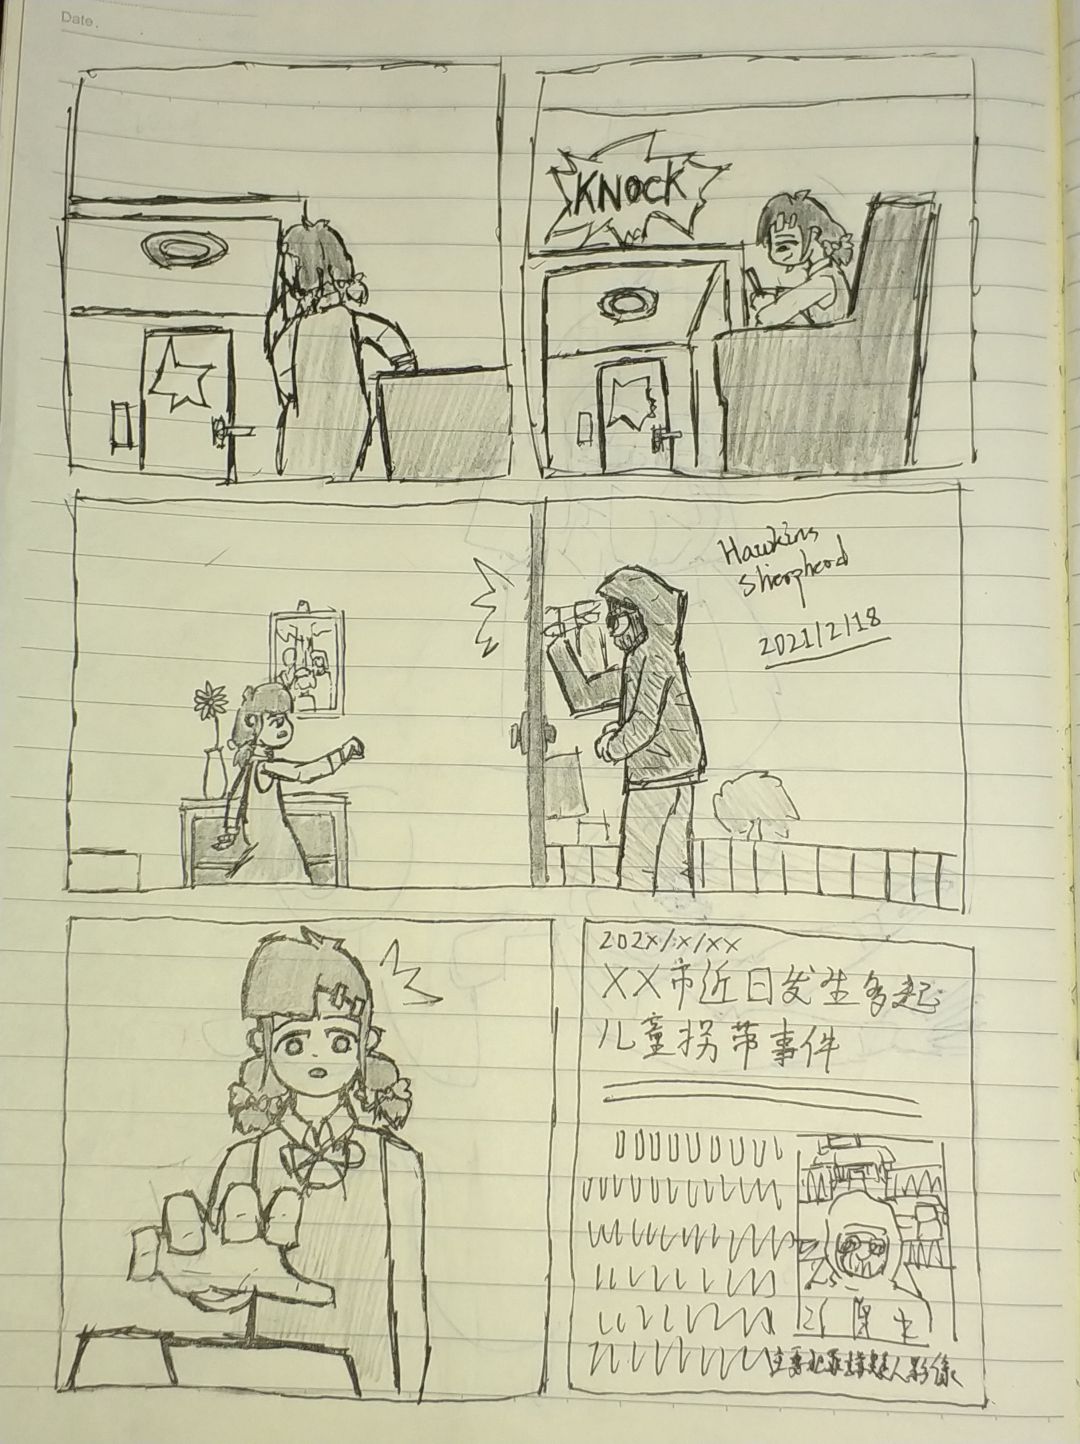 Date.
KNOCK
Hawkins
Shierpherd
2021/2/18
202X/X/XX
XX市近日发生多起
儿童拐带事件
主要犯罪嫌疑人影像